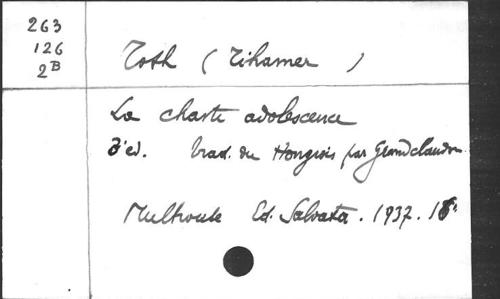 263
126
2B
Toth (Tihamer)
La chaste adolescence
3'ed. Trad. du Hongrois par Grandclaudon
Mulhouse Ed. Salvator. 1937. 16°